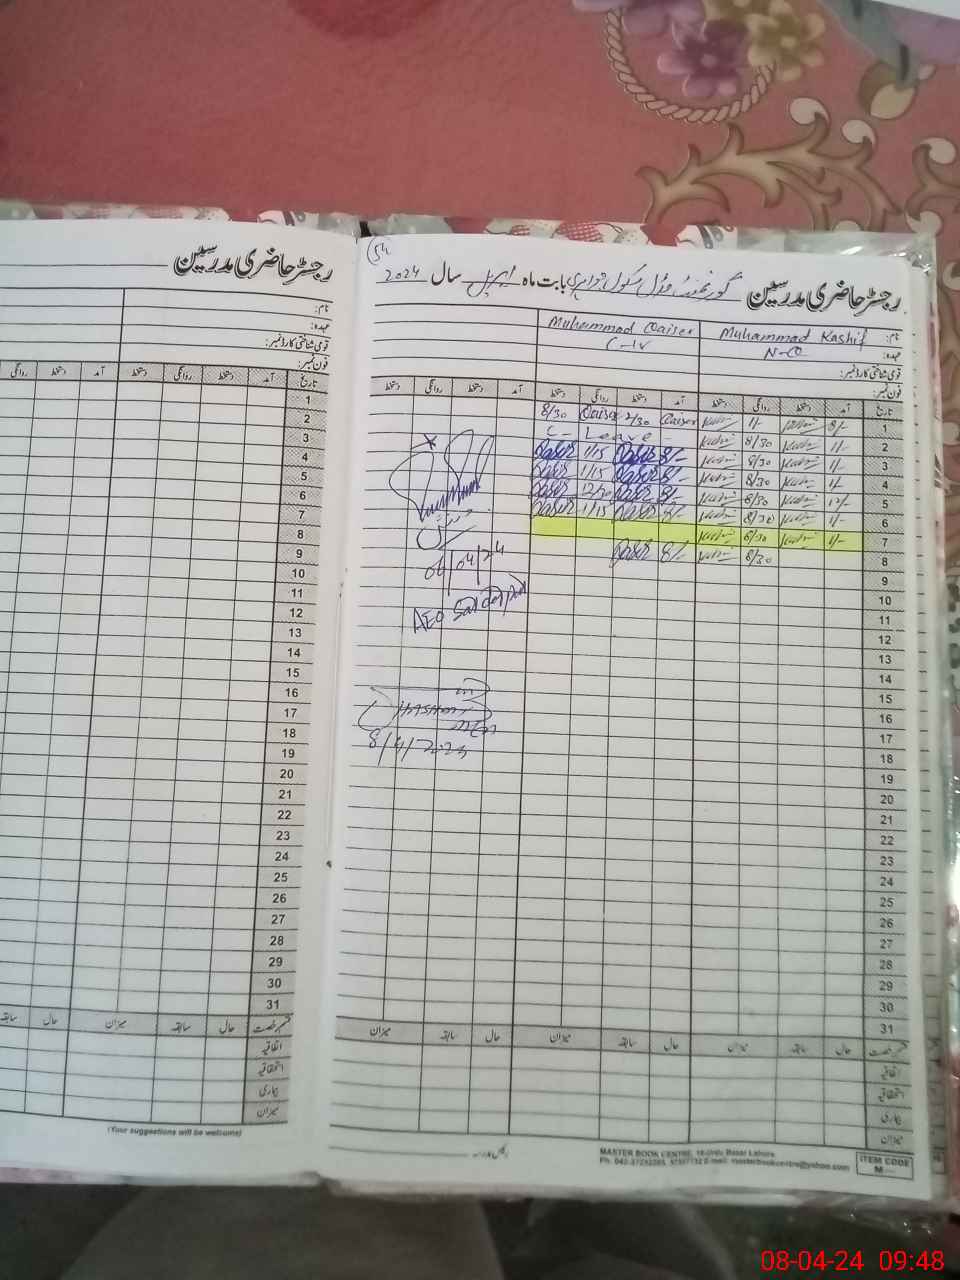 رجسٹر حاضری مدرسین
نام:
عہدہ:
قومی شناختی کارڈ نمبر:
فون نمبر:
تاریخ آمد دستخط روانگی دستخط آمد دستخط روانگی
1
2
3
4
5
6
7
8
9
10
11
12
13
14
15
16
17
18
19
20
21
22
23
24
25
26
27
28
29
30
31
قسم رخصت حال سابقہ میزان حال سابقہ
اتفاقیہ
استحقاقیہ
بیماری
میزان
(Your suggestions will be welcome)
54
رجسٹر حاضری مدرسین گورنمنٹ ماڈل سکول بابت ماہ اپریل سال 2024
نام: Muhammad Kashif Muhammad Qaiser
عہدہ: N-Q C-IV
قومی شناختی کارڈ نمبر:
فون نمبر:
تاریخ آمد دستخط روانگی دستخط آمد دستخط روانگی دستخط آمد دستخط روانگی دستخط
8/30 Qaiser 2/30 Qaiser 1/- 8/- 1
C - Leave - 8/30 1/- 2
Qaiser 1/15 Qaiser 8/- 8/30 1/- 3
Qaiser 1/15 Qaiser 8/- 8/30 1/- 4
Qaiser 12/30 Qaiser 8/- 8/30 12/- 5
Qaiser 1/15 Qaiser 8/- 8/30 1/- 6
8/30 1/- 7
Qaiser 8/- 8/30 8
9
10
11
12
13
14
15
16
17
18
19
20
21
22
23
24
25
26
27
28
29
30
31
06/04/24
AEO
8/4/2024
قسم رخصت حال سابقہ میزان حال سابقہ میزان حال سابقہ میزان
اتفاقیہ
استحقاقیہ
بیماری
میزان
MASTER BOOK CENTRE, 18-Urdu Bazar Lahore.
E-mail: masterbookcentre@yahoo.com
ITEM CODE
M---
08-04-24 09:48